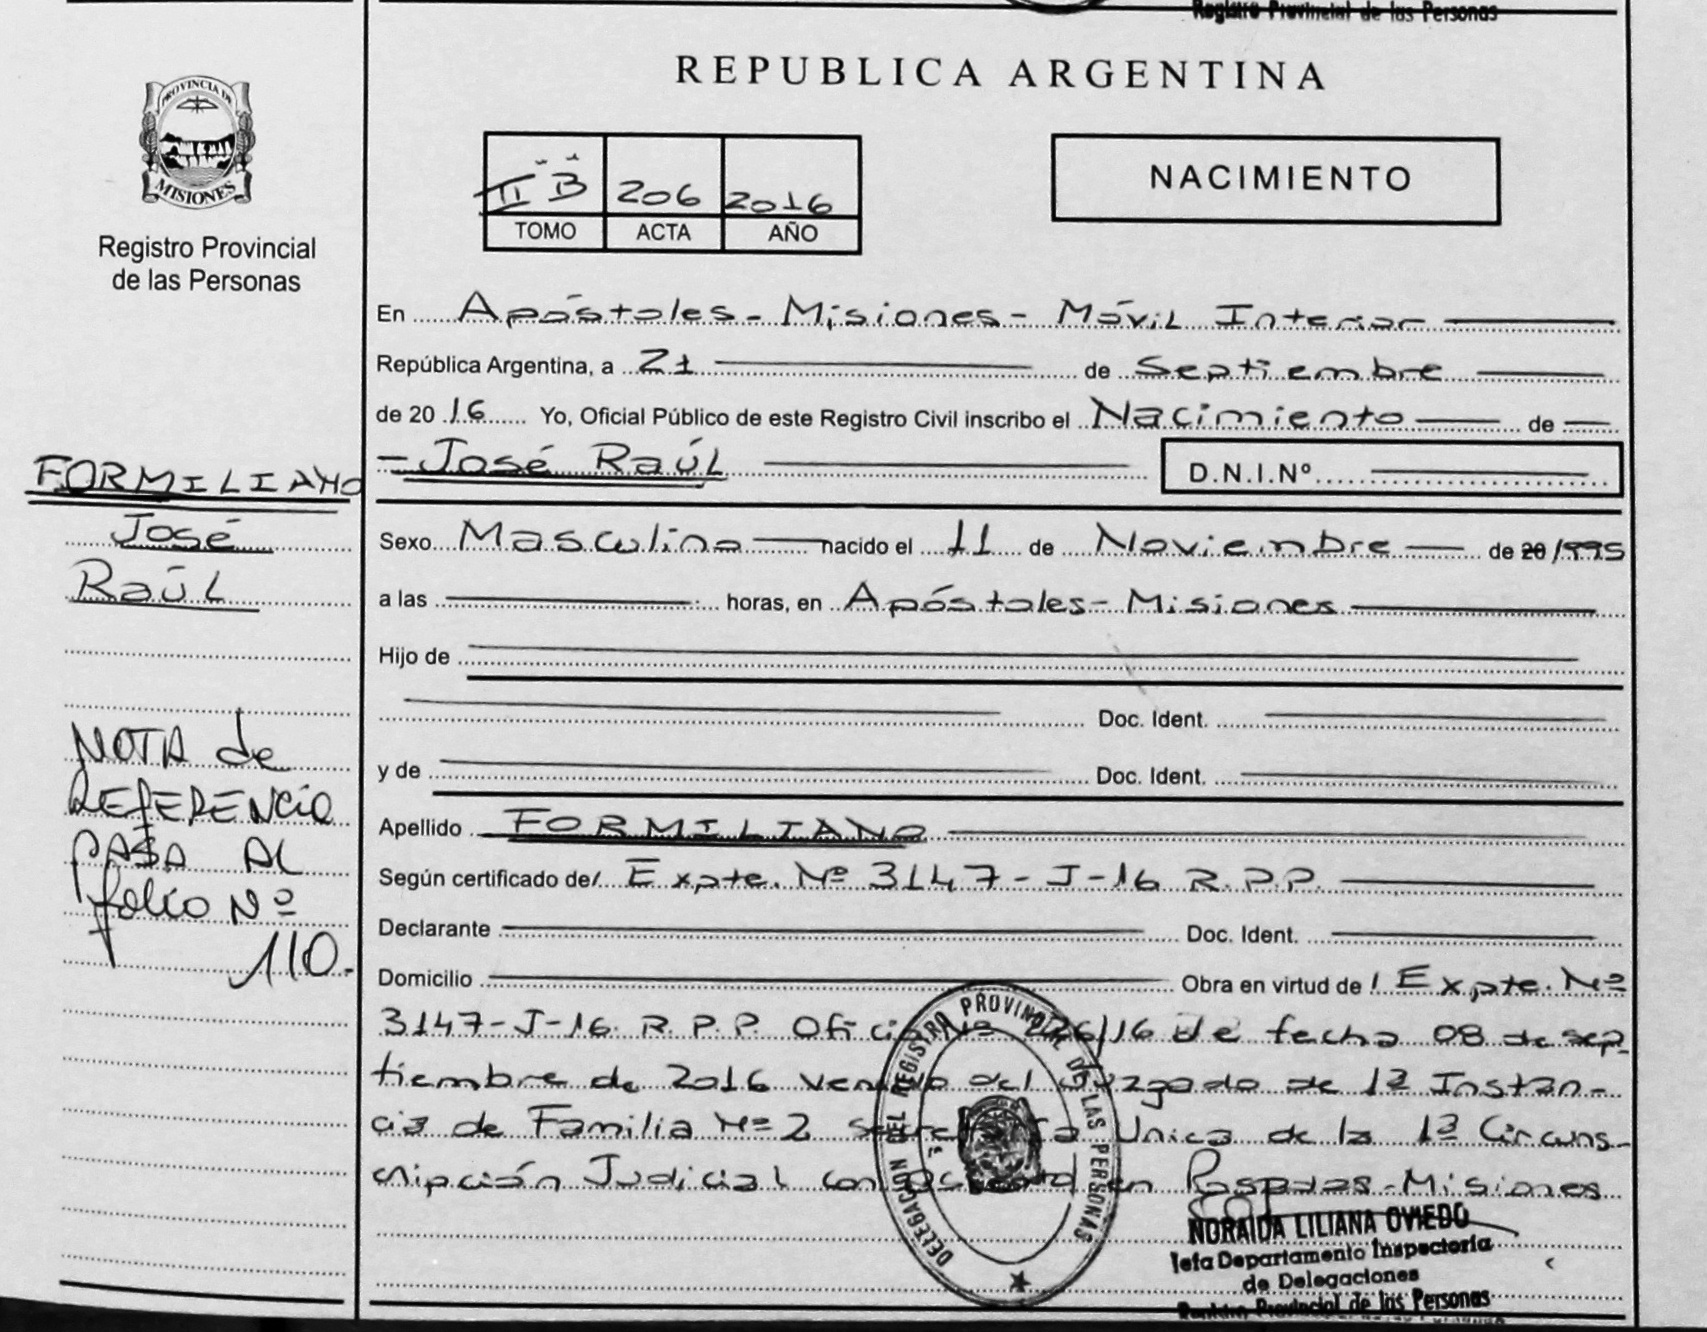 Registro Provincial de las Personas
REPUBLICA ARGENTINA
PROVINCIA DE
MISIONES
Registro Provincial
de las Personas
II B 206 2016
TOMO ACTA AÑO
NACIMIENTO
En Apóstoles - Misiones - Móvil Interior
República Argentina, a 21 de Septiembre
de 2016 Yo, Oficial Público de este Registro Civil inscribo el Nacimiento de
José Raúl D.N.I.Nº
FORMILIANO
José
Raúl
Sexo Masculino nacido el 11 de Noviembre de 20/1995
a las horas, en Apóstoles - Misiones
Hijo de
Doc. Ident.
y de Doc. Ident.
NOTA de
REFERENCIA
PASA AL
folio Nº
110.-
Apellido FORMILIANO
Según certificado de/ Expte. Nº 3147 - J - 16 R.P.P.
Declarante Doc. Ident.
Domicilio Obra en virtud de / Expte. Nº
3147-J-16 R.P.P. Oficio /16 de fecha 08 de sep-
tiembre de 2016 venido del Juzgado de 1ª Instan-
cia de Familia Nº 2 Secretaría Unica de la 1ª Circuns-
cripción Judicial con en Posadas - Misiones
DELEGACION DEL REGISTRO PROVINCIAL DE LAS PERSONAS
NORAIDA LILIANA OVIEDO
Jefa Departamento Inspectoría
de Delegaciones
Registro Provincial de las Personas